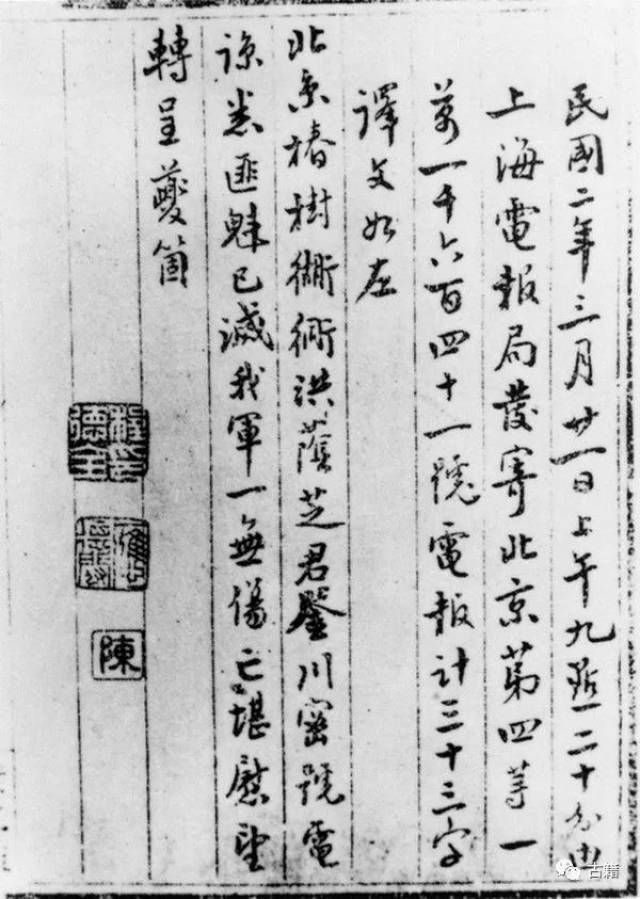 民國二年三月廿一日上午九點二十分由
上海電報局發寄北京第四等一
萬一千六百四十一號電報計三十三字
譯文如左
北京椿樹衚衕洪蔭芝君鑒川密號電
諒悉匪魁已滅我軍一無傷亡堪慰望
轉呈夔箇
程德全
應德閎
陳
古籍